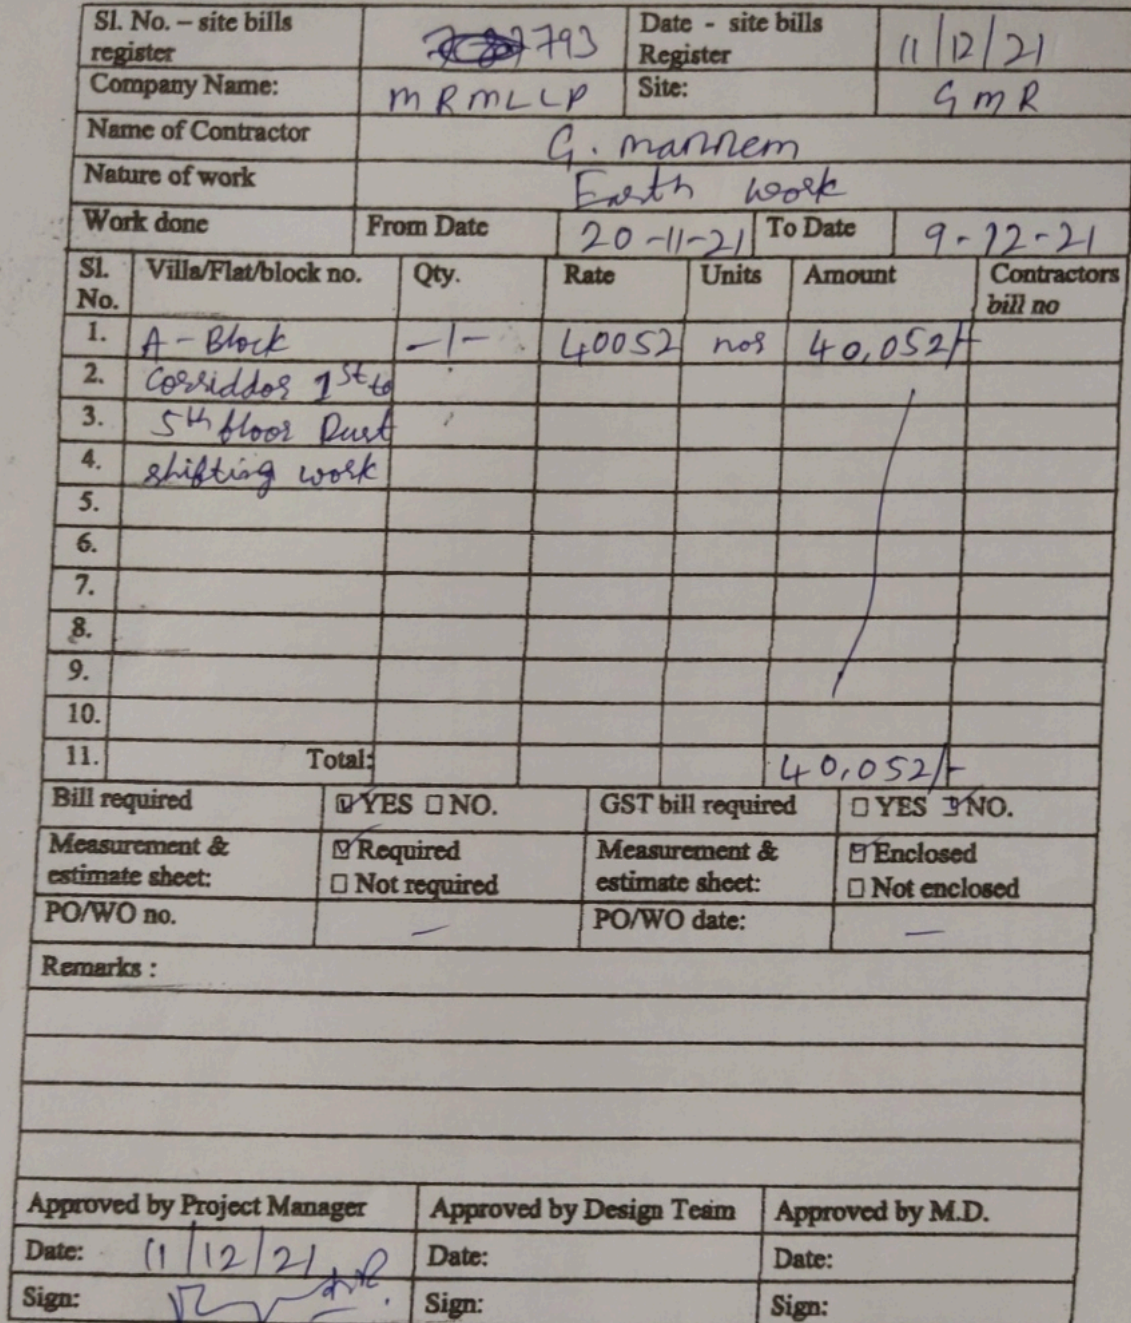 Sl. No. – site bills register 793 Date - site bills Register 11/12/21
Company Name: MRMLLP Site: GMR
Name of Contractor G. mannem
Nature of work Earth work
Work done From Date 20-11-21 To Date 9-12-21
Sl. No. Villa/Flat/block no. Qty. Rate Units Amount Contractors bill no
1. A - Block -1- 40052 nos 40,052/-
2. Corriddor 1st to
3. 5th floor Dust
4. shifting work
5.
6.
7.
8.
9.
10.
11. Total: 40,052/-
Bill required ☑ YES ☐ NO. GST bill required ☐ YES ☑ NO.
Measurement & estimate sheet: ☑ Required ☐ Not required Measurement & estimate sheet: ☑ Enclosed ☐ Not enclosed
PO/WO no. — PO/WO date: —
Remarks :
Approved by Project Manager Approved by Design Team Approved by M.D.
Date: 11/12/21 Date: Date:
Sign: Sign: Sign: